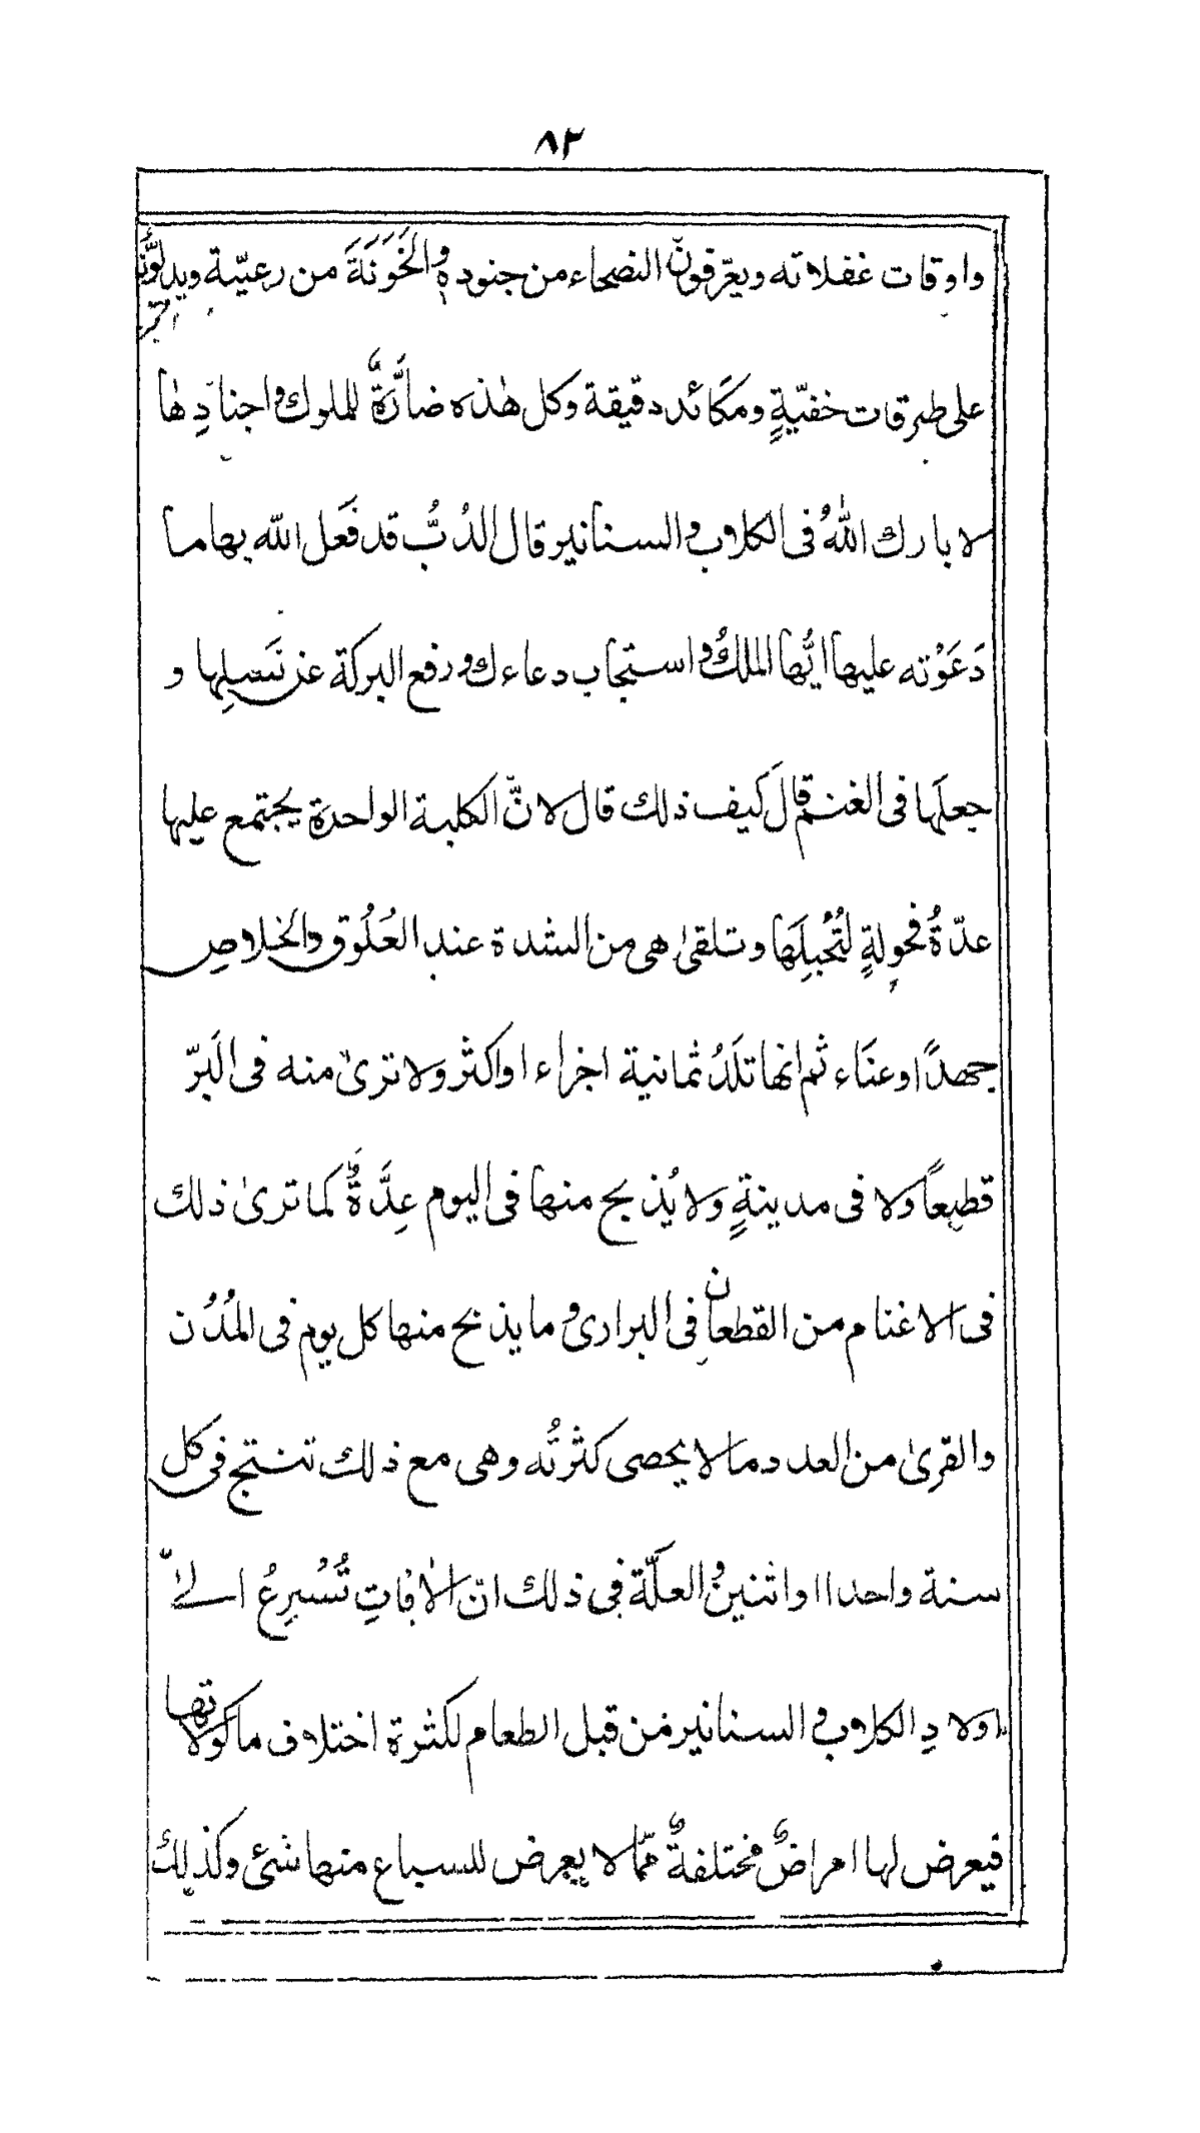 ٨٢
واوقات غفلاته ويعرّفونّ النصحاء من جنوده والخَوَنَةَ من رعيّية ويدلوّنَ
على طرقات خفيّةٍ ومكَائد دقيقة وكل هٰذه ضارَّةٌ للملوك واجنادِها
لا بارك اللهُ فى الكلاب والسنانير قال الدُبُّ قد فَعل الله بها ما
دَعَوْته عليها ايُّها الملكُ واستجاب دعاءك ورفع البركة عن نَسلِها و
جعلَها فى الغنم قالَ كيف ذلك قال لانّ الكلبة الواحدة يجتمع عليها
عدّةُ فحولةٍ لتُحُبِلَها وتلقىٰ هى من الشدة عند العُلُوق والخلاصِ
جهدًا وعنَاء ثم انها تلَدُ ثمانية اجراء او اكثر ولا ترىٰ منه فى البَرّ
قطيعاً ولا فى مدينةٍ ولا يُذبح منها فى اليوم عِدَّةٌ كما ترىٰ ذلك
فى الاغنام من القطعان فى البرارى وما يذبح منها كل يوم فى المُدُن
والقرِىٰ من العدد ما لا يحصى كثرتُه وهى مع ذلك تنتج فى كل
سنة واحدا او اثنين والعلّة فى ذلك انّ الاٰفاتِ تُسُرِعُ الىٰ
اولادِ الكلاب والسنانير من قبل الطعام لكثرة اختلاف ماكولاتها
فيعرض لها امراضٌ مختلفةٌ ممّا لا يعرض للسباع منها شئ وكذلكَ